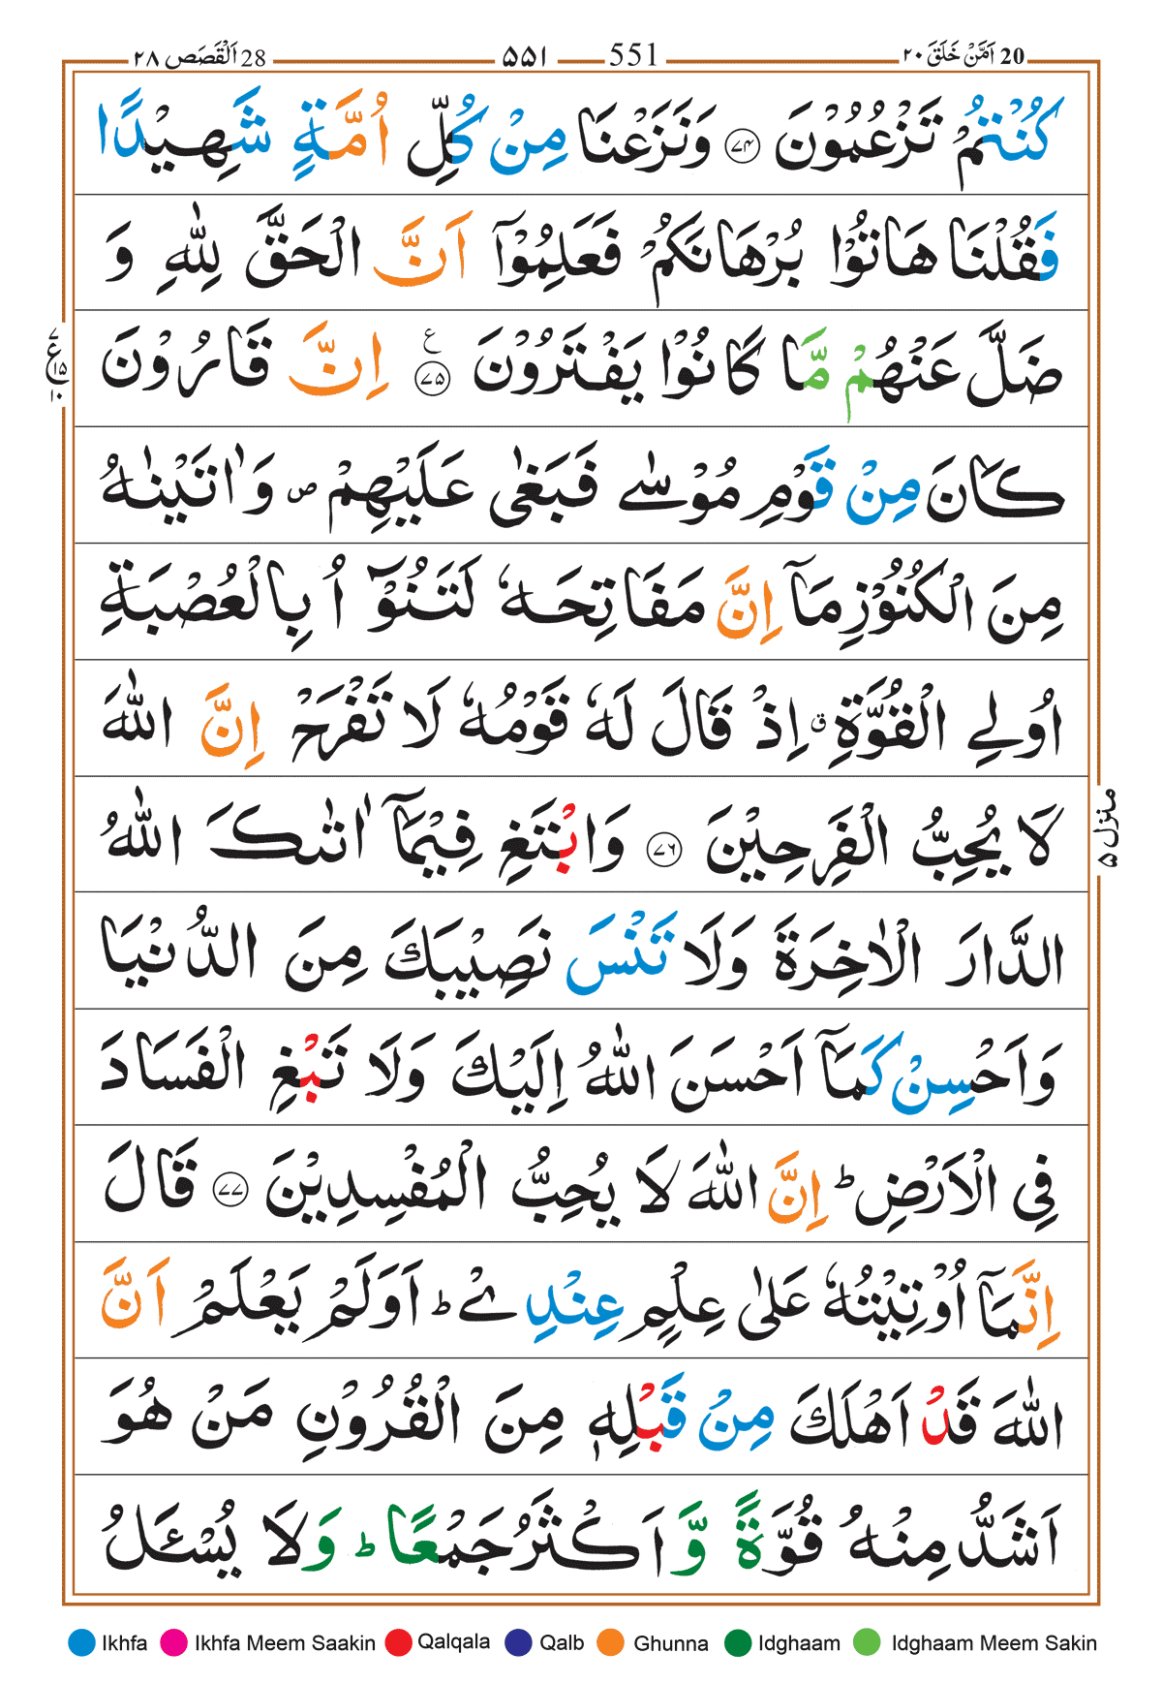 28 اَلْقَصَص ٢٨
551 ٥٥١
20 اَمَّنْ خَلَقَ ٢٠
كُنْتُمْ تَزْعُمُوْنَ ﴿٧٤﴾ وَنَزَعْنَا مِنْ كُلِّ اُمَّةٍ شَهِيْدًا
فَقُلْنَا هَاتُوْا بُرْهَانَكُمْ فَعَلِمُوْٓا اَنَّ الْحَقَّ لِلّٰهِ وَ
ضَلَّ عَنْهُمْ مَّا كَانُوْا يَفْتَرُوْنَ ﴿٧٥﴾ ع اِنَّ قَارُوْنَ
٧ ع ١٥ ١٠
كَانَ مِنْ قَوْمِ مُوْسٰى فَبَغٰى عَلَيْهِمْ ص وَاٰتَيْنٰهُ
مِنَ الْكُنُوْزِ مَآ اِنَّ مَفَاتِحَهٗ لَتَنُوْٓاُ بِالْعُصْبَةِ
اُولِي الْقُوَّةِ ق اِذْ قَالَ لَهٗ قَوْمُهٗ لَا تَفْرَحْ اِنَّ اللّٰهَ
لَا يُحِبُّ الْفَرِحِيْنَ ﴿٧٦﴾ وَابْتَغِ فِيْمَآ اٰتٰىكَ اللّٰهُ
منزل ٥
الدَّارَ الْاٰخِرَةَ وَلَا تَنْسَ نَصِيْبَكَ مِنَ الدُّنْيَا
وَاَحْسِنْ كَمَآ اَحْسَنَ اللّٰهُ اِلَيْكَ وَلَا تَبْغِ الْفَسَادَ
فِي الْاَرْضِ ط اِنَّ اللّٰهَ لَا يُحِبُّ الْمُفْسِدِيْنَ ﴿٧٧﴾ قَالَ
اِنَّمَآ اُوْتِيْتُهٗ عَلٰى عِلْمٍ عِنْدِيْ ط اَوَلَمْ يَعْلَمْ اَنَّ
اللّٰهَ قَدْ اَهْلَكَ مِنْ قَبْلِهٖ مِنَ الْقُرُوْنِ مَنْ هُوَ
اَشَدُّ مِنْهُ قُوَّةً وَّ اَكْثَرُ جَمْعًا ط وَلَا يُسْـَٔلُ
Ikhfa Ikhfa Meem Saakin Qalqala Qalb Ghunna Idghaam Idghaam Meem Sakin